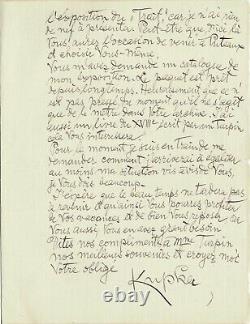 l'exposition du "Trait", car je n'ai rien
de neuf à présenter. Peut-être que d'ici là
Vous aurez l'occasion de venir à Puteaux
et choisir Vous-même.
Vous m'avez demandé un catalogue de
mon exposition. Le paquet est prêt
depuis longtemps. Heureusement que ce n'
est pas pressé du moment qu'il ne s'agit
que de le mettre dans Votre archive. J'ai
aussi un livre du XVIII e écrit par un Turpin
ça Vous intéressera.
Pour le moment je suis en train de me
demander comment j'arriverai à égaliser
au moins ma situation vis à vis de Vous,
je Vous dois beaucoup.
J'espère que le beau temps ne tardera pas
à revenir et qu'ainsi Vous pourrez profiter
de Vos vacances et de bien Vous reposer car
Vous aussi Vous en avez grand besoin
Dites nos compliments à Mme Turpin
nos meilleurs souvenirs et croyez moi
Votre obligé
Kupka